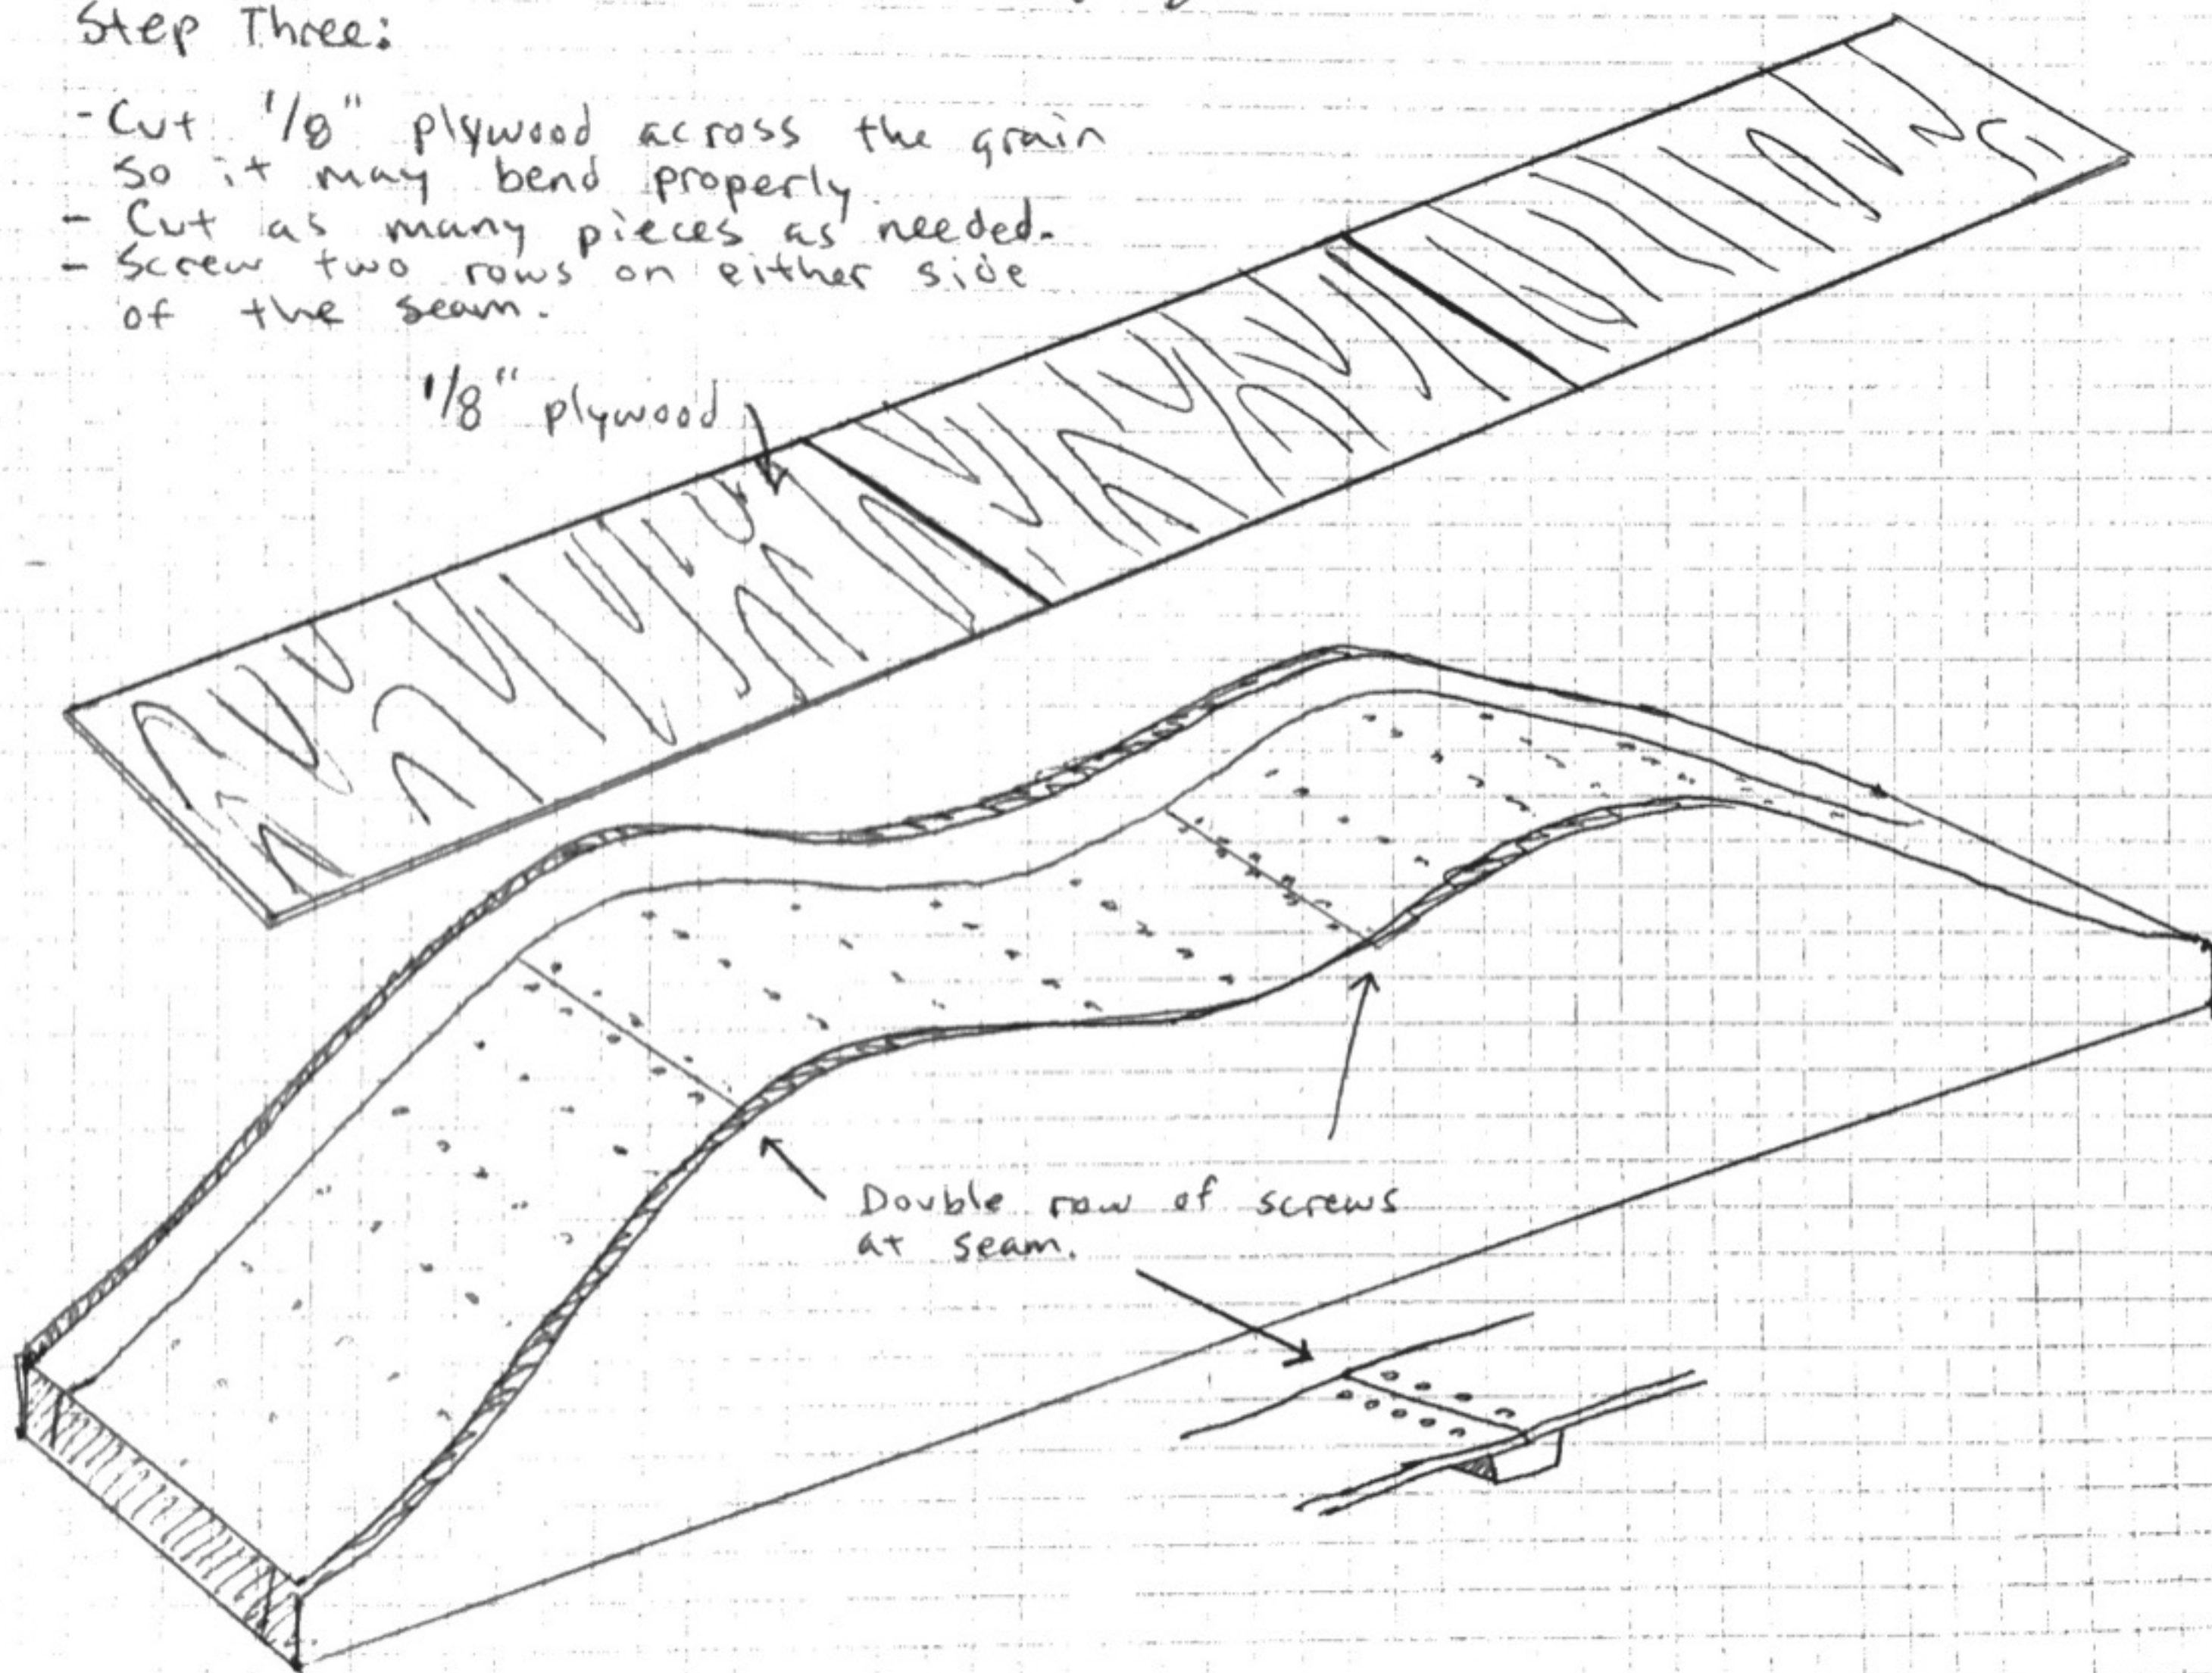 Step Three:
- Cut 1/8" plywood across the grain
so it may bend properly.
- Cut as many pieces as needed.
- Screw two rows on either side
of the seam.
1/8" plywood
Double row of screws
at seam.